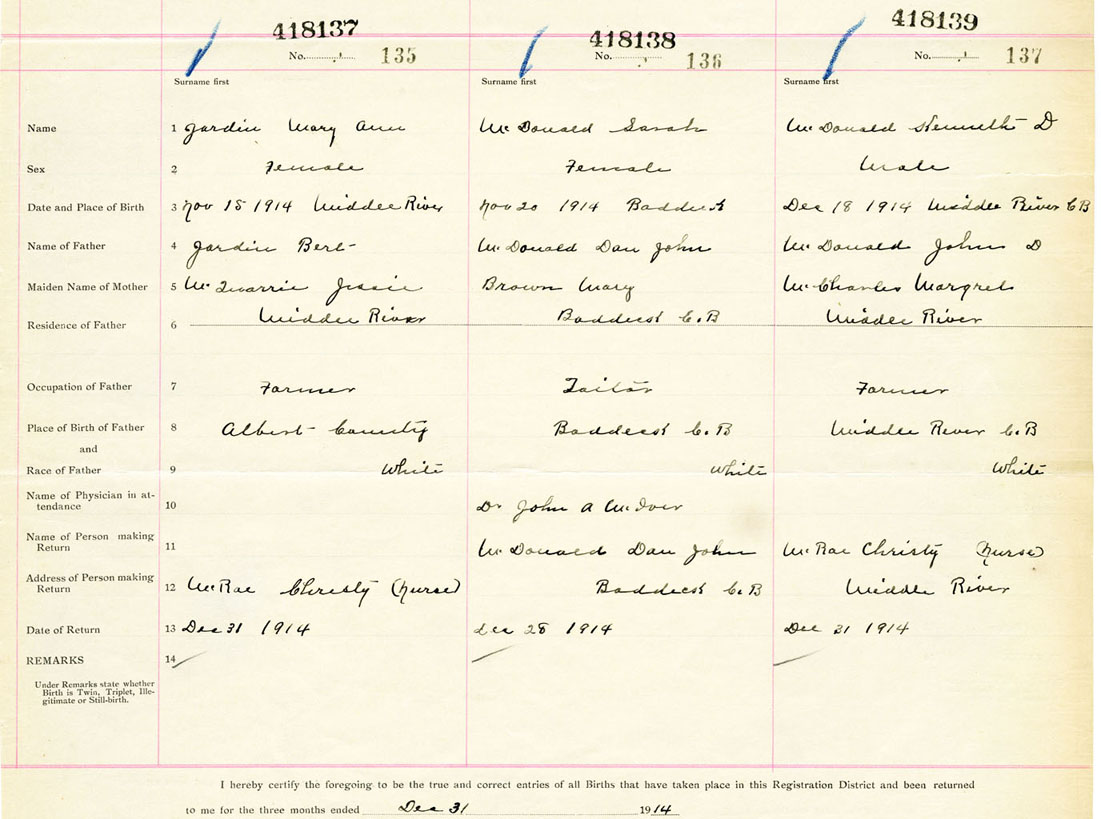 418137 418138 418139
No. 135 No. 136 No. 137
Surname first Surname first Surname first
Name 1 Jardin Mary Ann McDonald Sarah McDonald Kenneth D
Sex 2 Female Female Male
Date and Place of Birth 3 Nov 15 1914 Middle River Nov 20 1914 Baddeck Dec 18 1914 Middle River C B
Name of Father 4 Jardin Bert McDonald Dan John McDonald John D
Maiden Name of Mother 5 Mc Jessie Brown Mary McCharles Margret
Residence of Father 6 Middle River Baddeck C.B Middle River
Occupation of Father 7 Farmer Tailor Farmer
Place of Birth of Father 8 Albert County Baddeck C.B Middle River C.B
and
Race of Father 9 White White White
Name of Physician in at-
tendance 10 Dr John A McIver
Name of Person making
Return 11 McDonald Dan John McRae Christy (Nurse)
Address of Person making
Return 12 McRae Christy (Nurse) Baddeck C.B Middle River
Date of Return 13 Dec 31 1914 Dec 28 1914 Dec 31 1914
REMARKS 14
Under Remarks state whether
Birth is Twin, Triplet, Ille-
gitimate or Still-birth.
I hereby certify the foregoing to be the true and correct entries of all Births that have taken place in this Registration District and been returned
to me for the three months ended Dec 31 1914